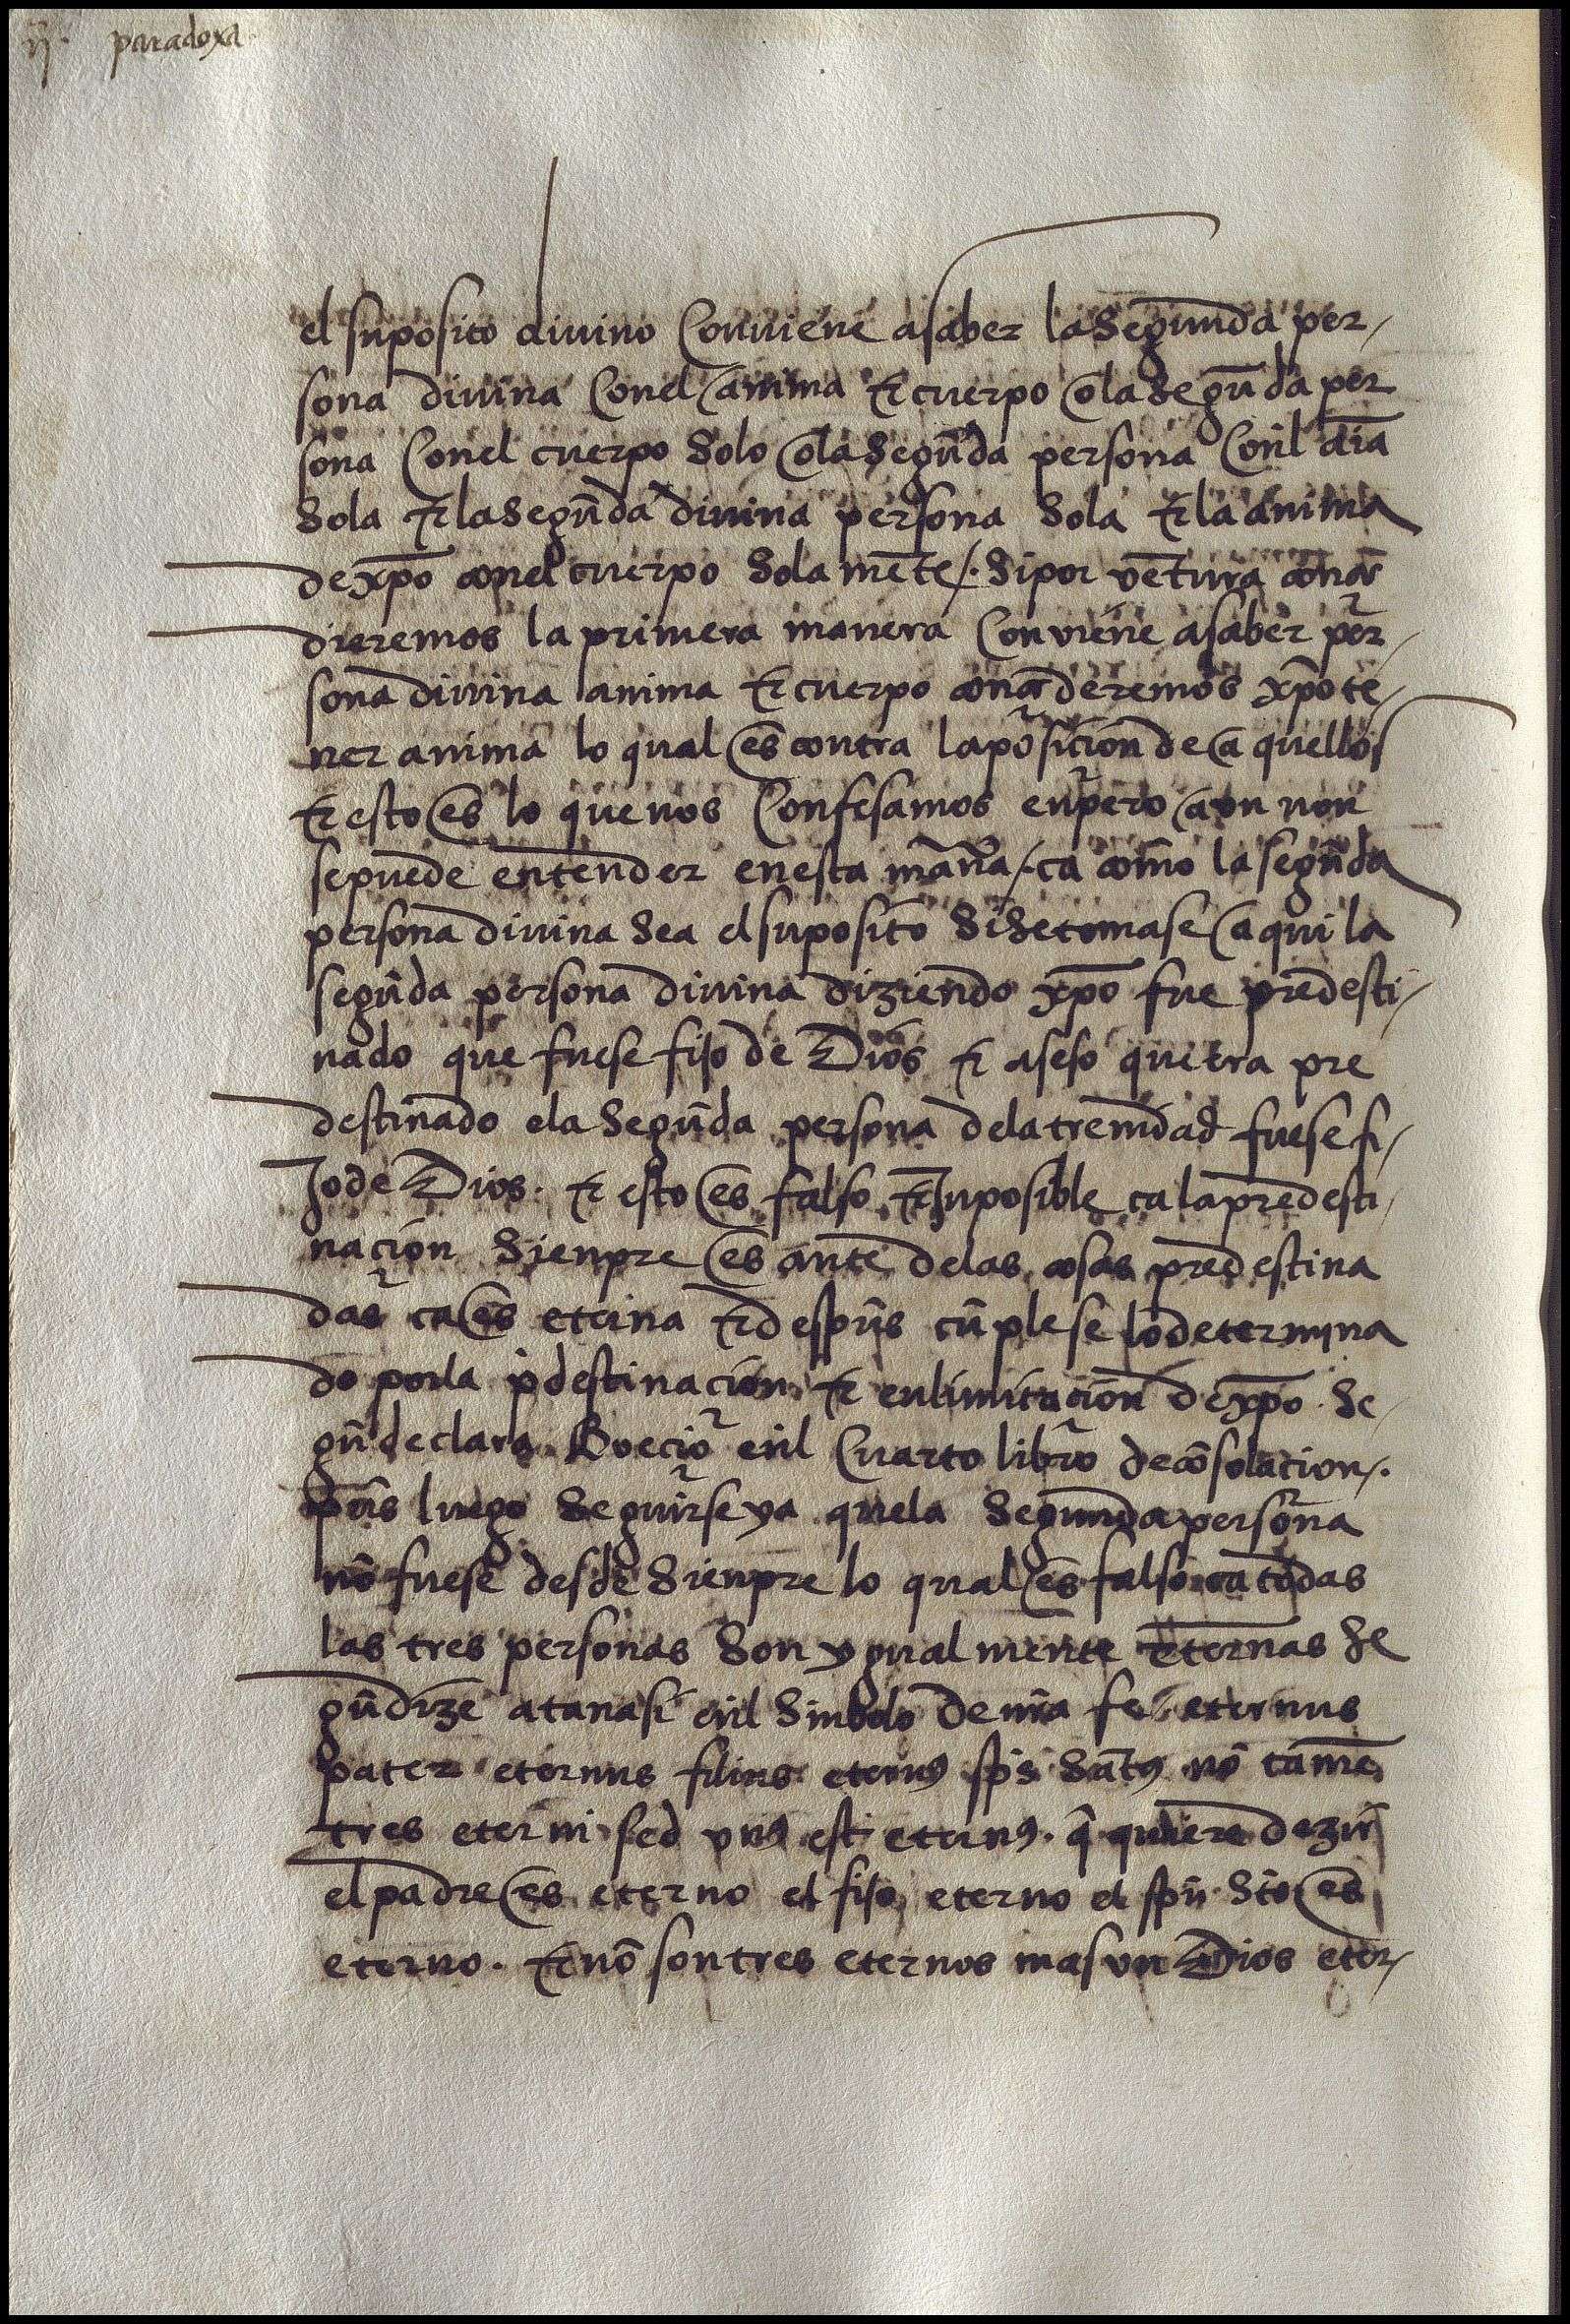 ij. paradoxa
el suposito diuino Conuiene asaber la Segunda per-
sona diuina Conel anima & cuerpo o la segūda per
sona Conel cuerpo Solo o la Segūda persona Conl āīa
Sola & la Segūda diuina persona Sola & la anima
de xp̄o conel cuerpo Sola mēte /. Si por vētura
dieremos la primera manera Conviene asaber per-
sona diuina anima & cuerpo xp̄o te-
ner anima lo qual es contra la posiciōn de a quellos
& esto es lo que nos Confesamos enpero avn non
se puede entender enesta man̄a /. ca com̄o la segūda
persona diuina Sea el suposito Si Se tomase a qui la
segūda persona diuina diziendo xp̄o fue predesti-
nado que fuese fijo de Dios & que era pre
destinado la Segūda persona dela trenidad fuese fi-
jo de Dios. & esto es falso & Inposible ca la predesti-
nacion Sienpre es ante delas cosas predestina
das ca es eterna & despūs cūplese lo determina
do por la p̄destinacion & en limitaciōn de xp̄o. Se-
gūd declara Boecio enl Cuarto libro de cōsolacion /.
pūs luego Seguirse ya que la Segunda persona
nō fuese desde Sienpre lo qual es falso ca todas
las tres personas Son ygual mente Eternas Se
gūd dize atanasi enl Sinbolo de nr̄a fe. eternus
pater eternus filius eternꝰ sp̄s Sātꝰ nō tamē
tres eterni sed vnꝰ est eternꝰ. q̄ quiere dezir
el padre es eterno el fijo eterno el sp̄ū Stō es
eterno. & nō son tres eternos mas vn Dios eter-